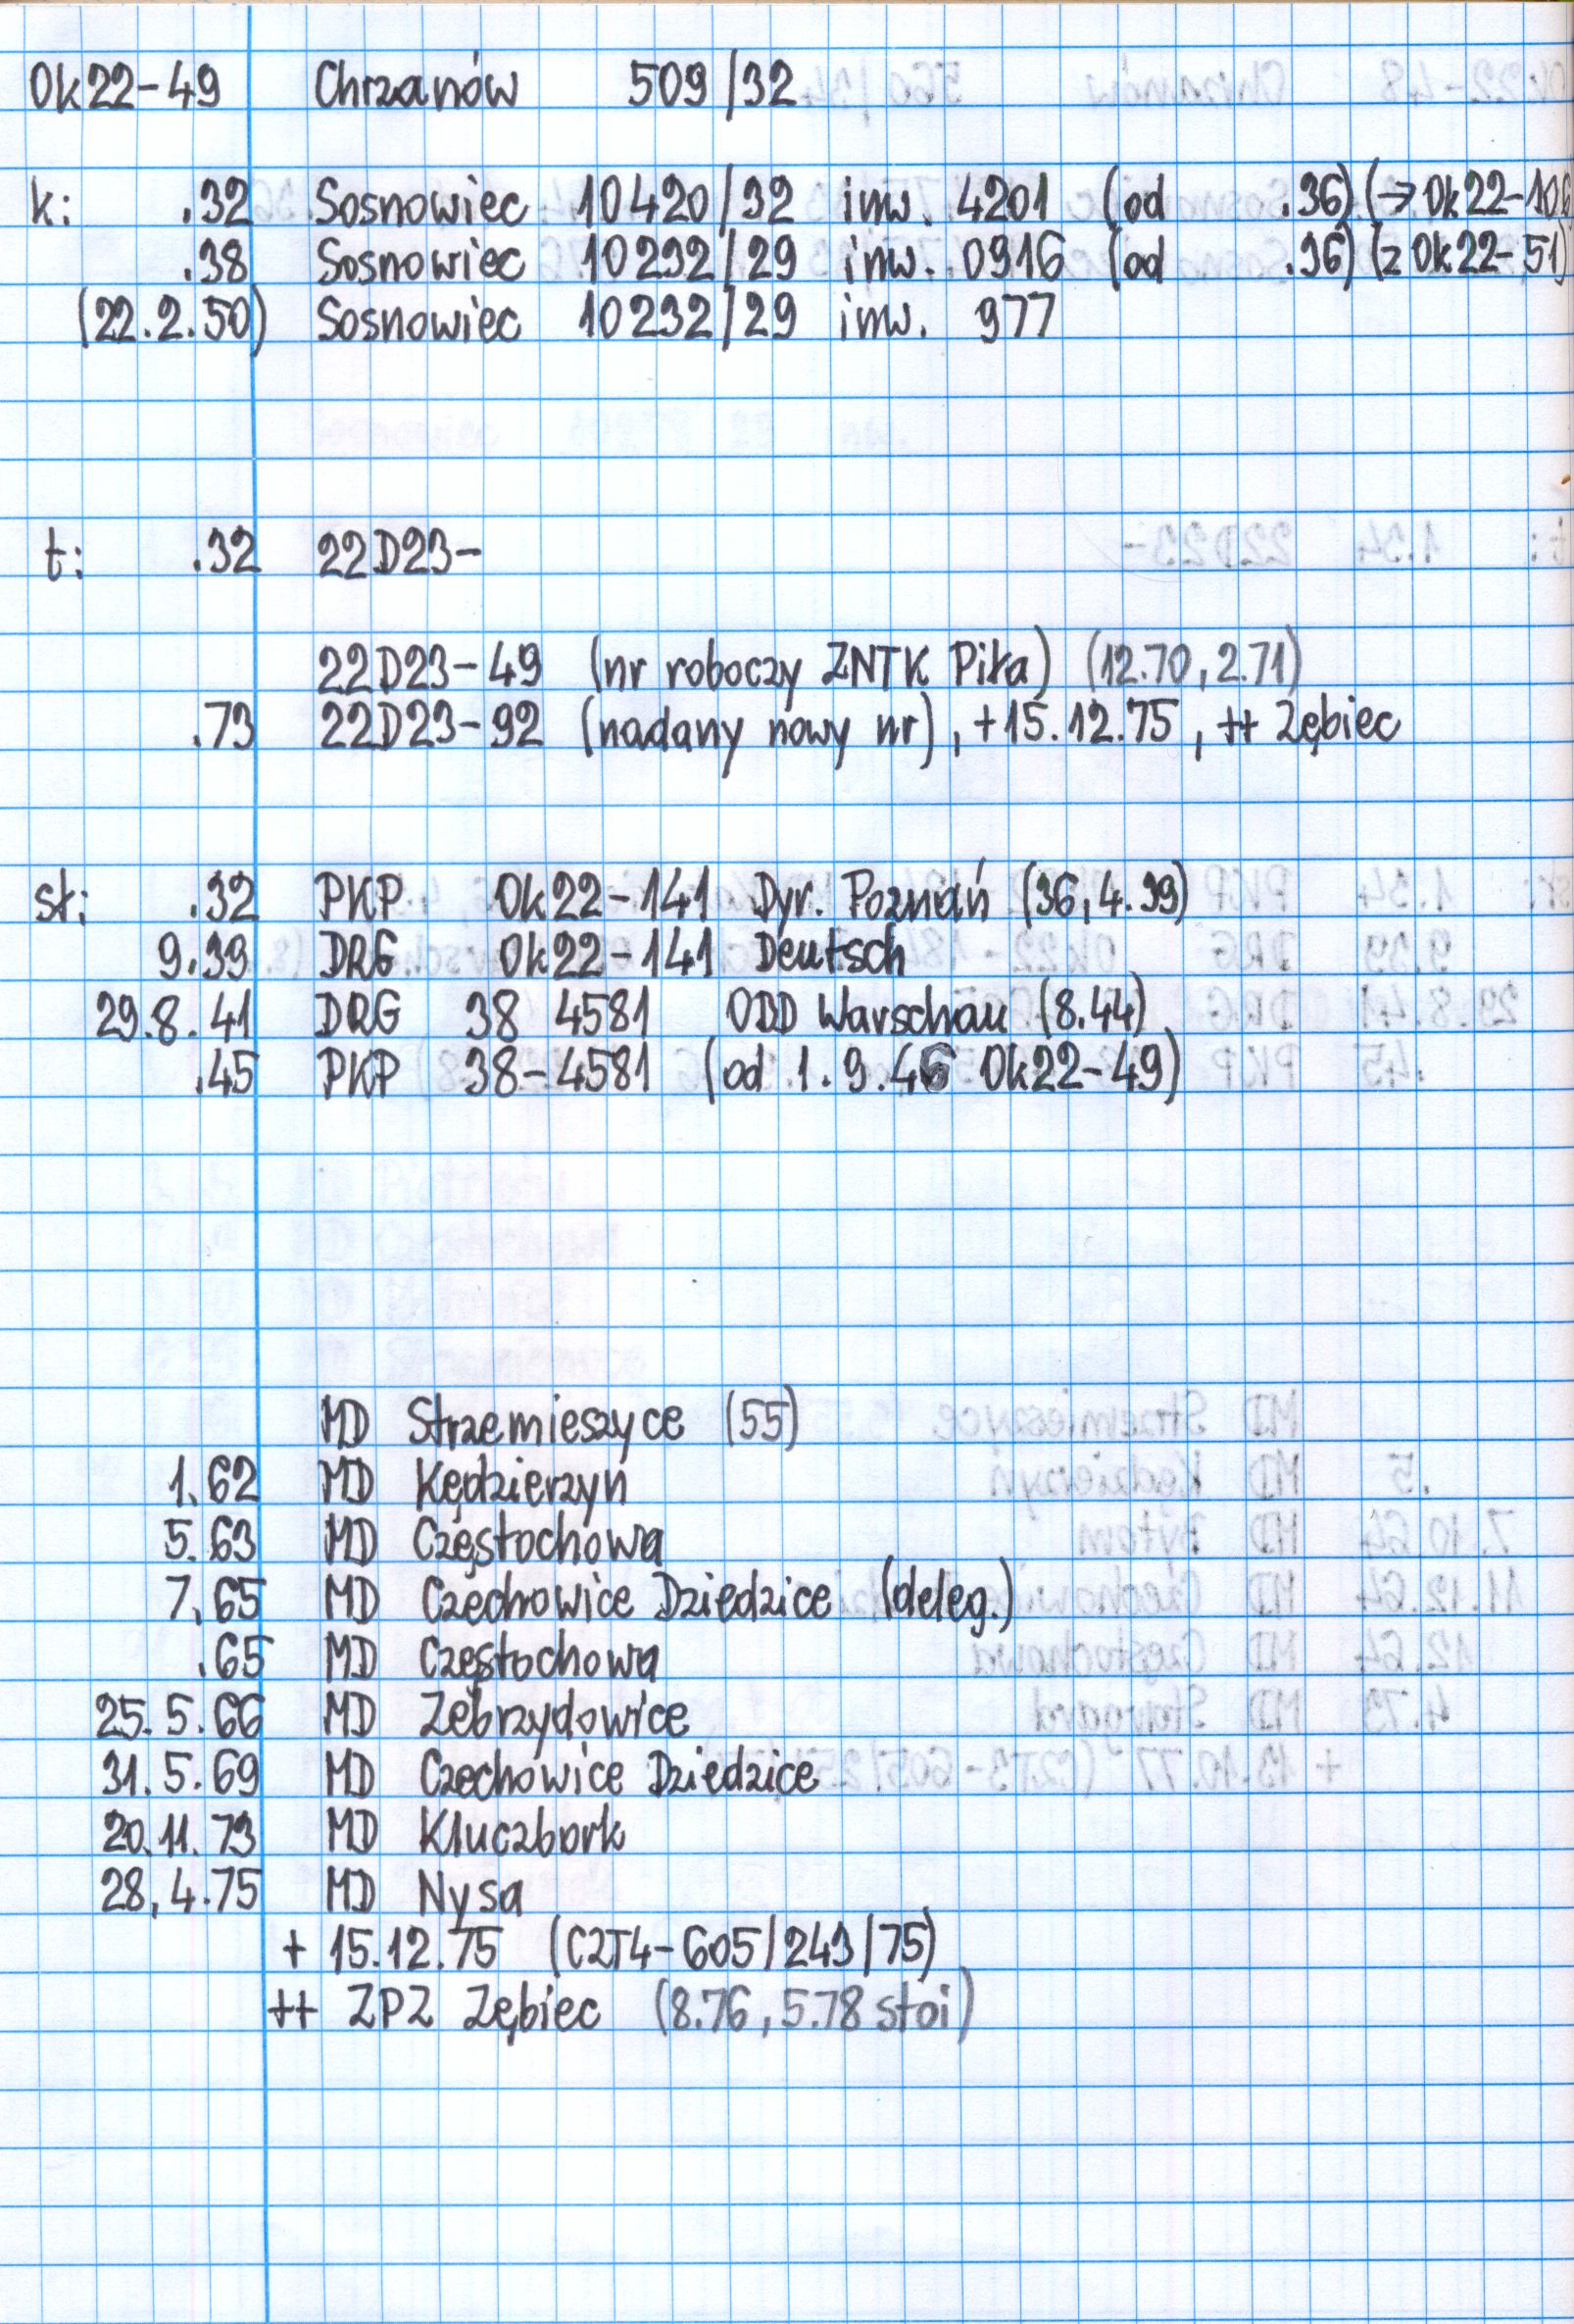 Ok22-49 Chrzanów 509/32
k: .32 Sosnowiec 10420/32 inw. 4201 (od .36) (→ Ok22-106
.38 Sosnowiec 10232/29 inw. 0916 (od .36) (z Ok22-51)
(22.2.50) Sosnowiec 10232/29 inw. 977
t: .32 22D23-
22D23-49 (nr roboczy ZNTK Piła) (12.70, 2.71)
.73 22D23-92 (nadany nowy nr), +15.12.75, ++ Zębiec
st: .32 PKP Ok22-141 Dyr. Poznań (36, 4.39)
9.39 DRG Ok22-141 Deutsch
29.8.41 DRG 38 4581 OBD Warschau (8.44)
.45 PKP 38-4581 (od 1.9.46 Ok22-49)
MD Strzemieszyce (55)
1.62 MD Kędzierzyn
5.63 MD Częstochowa
7.65 MD Czechowice Dziedzice (deleg.)
.65 MD Częstochowa
25.5.66 MD Zebrzydowice
31.5.69 MD Czechowice Dziedzice
20.11.73 MD Kluczbork
28,4.75 MD Nysa
+ 15.12.75 (C2T4-605/243/75)
++ ZPZ Zębiec (8.76, 5.78 stoi)